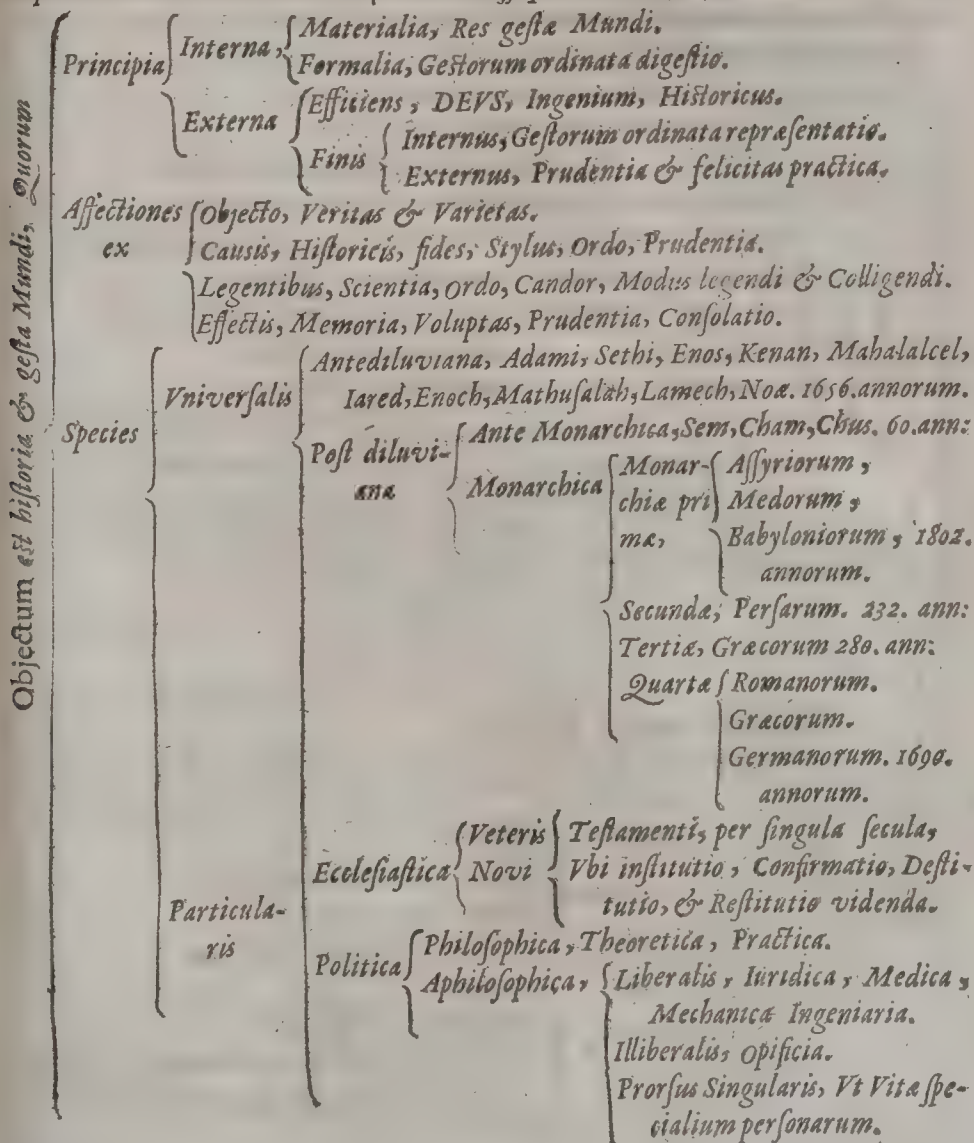 Objectum est historia & gesta Mundi, Quorum
Principia
Interna, Materialia, Res gestæ Mundi.
Formalia, Gestorum ordinata digestio.
Externa
Efficiens, DEVS, Ingenium, Historicus.
Finis
Internus, Gestorum ordinata repræsentatio.
Externus, Prudentia & felicitas practica.
Affectiones
ex
Objecto, Veritas & Varietas.
Causis, Historicis, fides, Stylus, Ordo, Prudentia.
Legentibus, Scientia, Ordo, Candor, Modus legendi & Colligendi.
Effectis, Memoria, Voluptas, Prudentia, Consolatio.
Species
Vniversalis
Antediluviana, Adami, Sethi, Enos, Kenan, Mahalalcel,
Iared, Enoch, Mathusalah, Lamech, Noæ. 1656. annorum.
Post diluvi-
ana
Ante Monarchica, Sem, Cham, Chus. 60. ann:
Monarchica
Monar-
chiæ pri
mæ,
Assyriorum,
Medorum,
Babyloniorum, 1802.
annorum.
Secundæ, Persarum. 232. ann:
Tertiæ, Græcorum 280. ann:
Quartæ
Romanorum.
Græcorum.
Germanorum. 1690.
annorum.
Particula-
ris
Ecclesiastica
Veteris
Novi
Testamenti, per singula secula,
Vbi institutio, Confirmatio, Desti-
tutio, & Restitutio videnda.
Politica
Philosophica, Theoretica, Practica.
Aphilosophica,
Liberalis, Iuridica, Medica,
Mechanica Ingeniaria.
Illiberalis, Opificia.
Prorsus Singularis, Vt Vitæ spe-
cialium personarum.